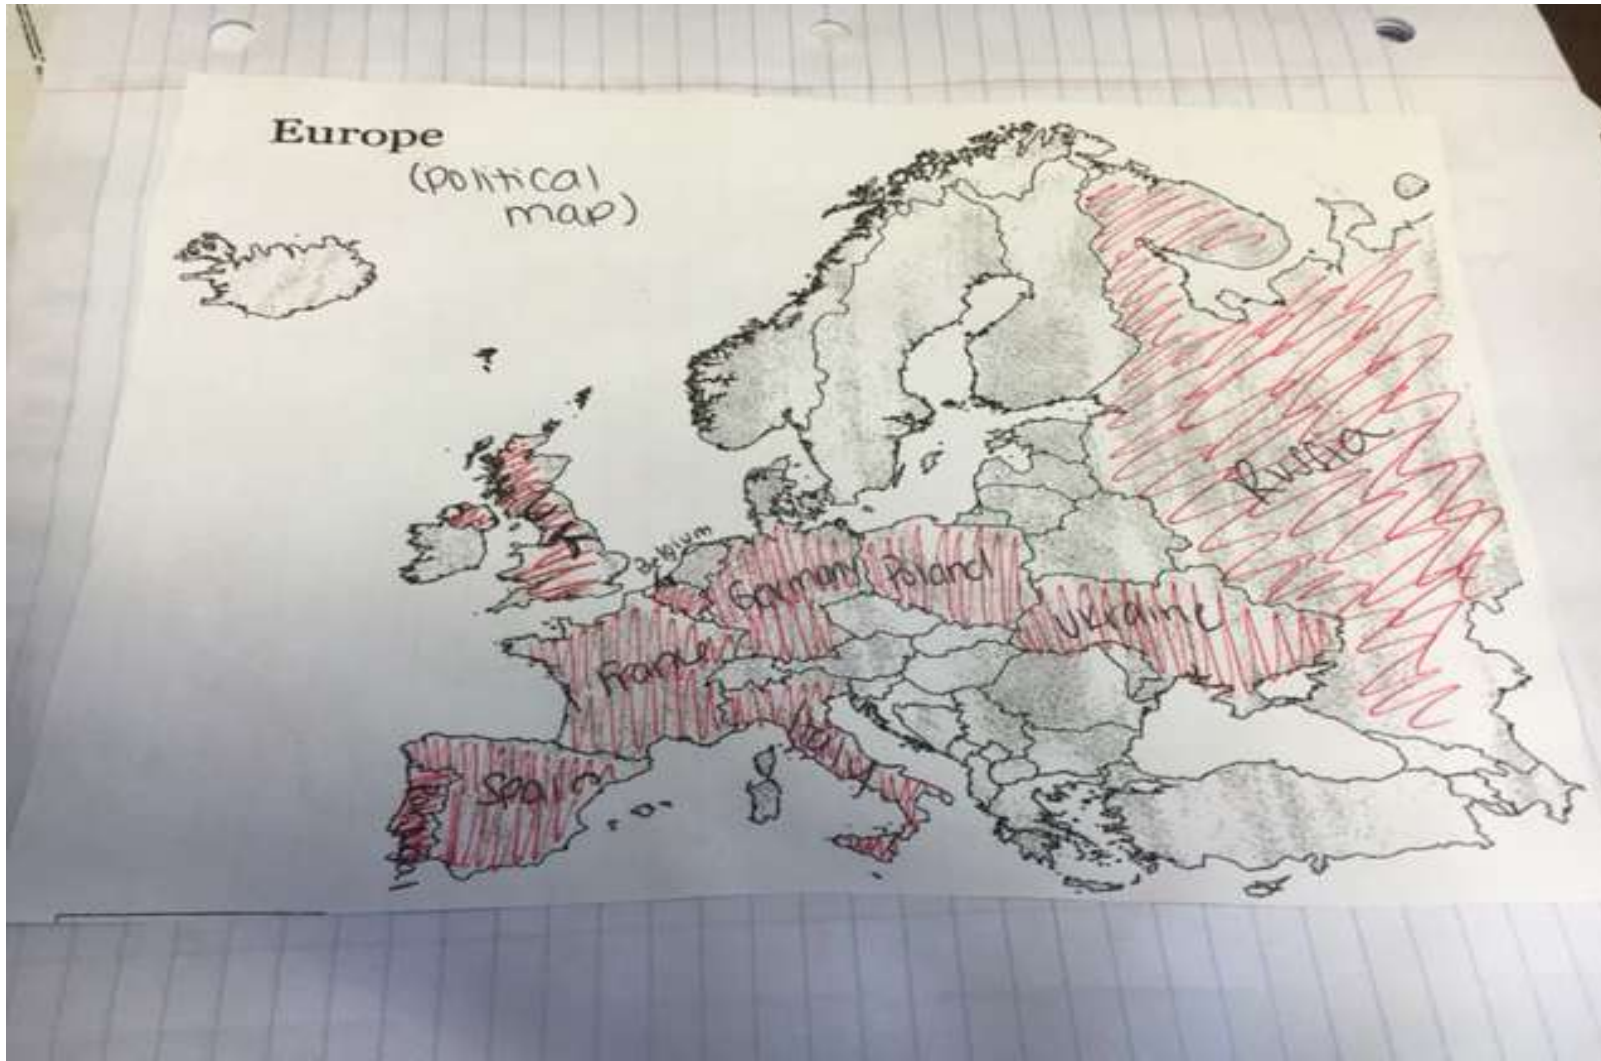 Europe
(political
map)
Russia
Belgium
Germany
Poland
Ukraine
France
Italy
Spain
Portugal